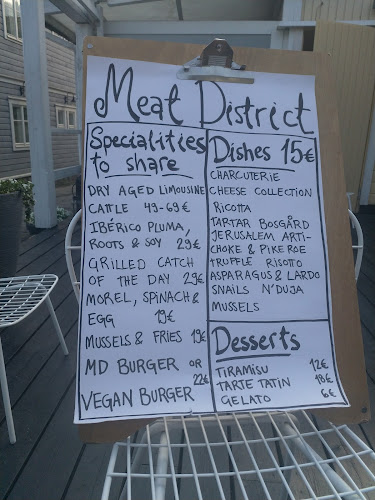 Meat District
Specialities
to share
DRY AGED LIMOUSINE
CATTLE 49-69€
IBÉRICO PLUMA,
ROOTS & SOY 29€
GRILLED CATCH
OF THE DAY 29€
MOREL, SPINACH &
EGG 19€
MUSSELS & FRIES 19€
MD BURGER OR
VEGAN BURGER 22€
Dishes 15€
CHARCUTERIE
CHEESE COLLECTION
RICOTTA
TARTAR BOSGÅRD
JERUSALEM ARTI-
CHOKE & PIKE ROE
TRUFFLE RISOTTO
ASPARAGUS & LARDO
SNAILS N'DUJA
MUSSELS
Desserts
TIRAMISU 12€
TARTE TATIN 18€
GELATO 6€